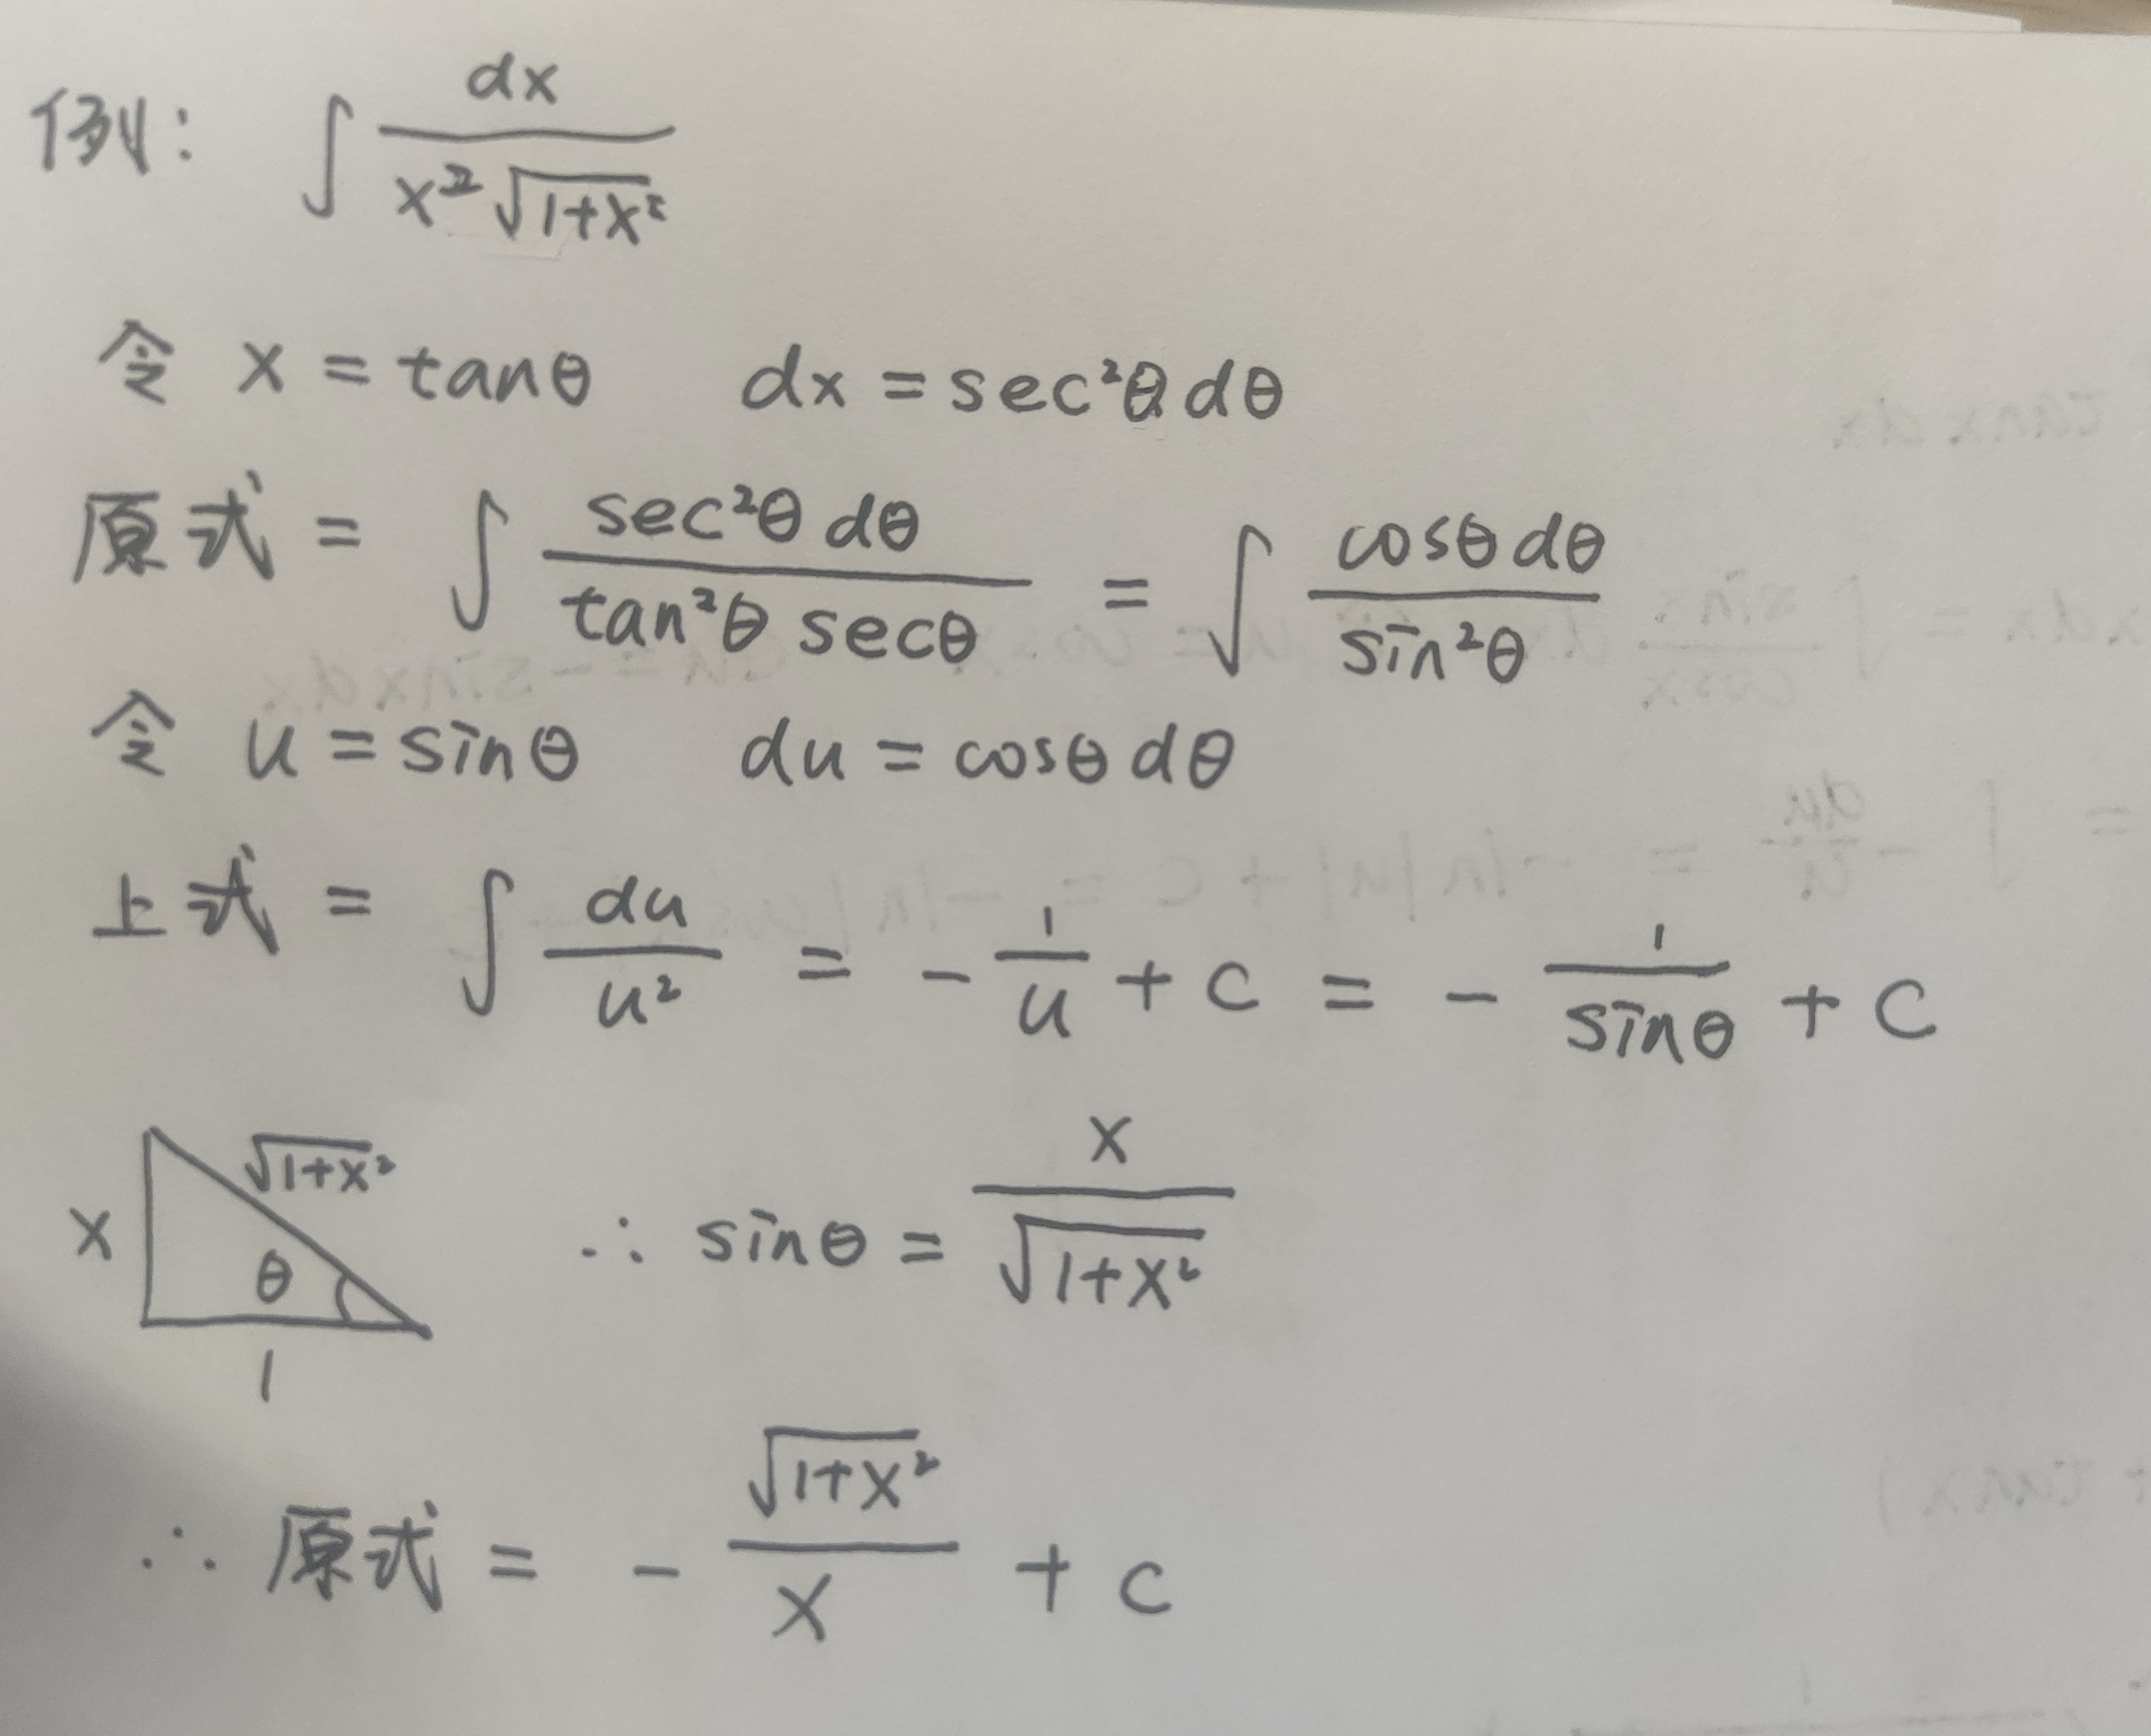 例: ∫ dx / (x²√(1+x²))
令 x = tanθ dx = sec²θ dθ
原式 = ∫ sec²θ dθ / (tan²θ secθ) = ∫ cosθ dθ / sin²θ
令 u = sinθ du = cosθ dθ
上式 = ∫ du / u² = - 1/u + C = - 1/sinθ + C
√(1+x²)
x
θ
1
∴ sinθ = x / √(1+x²)
∴ 原式 = - √(1+x²) / x + C